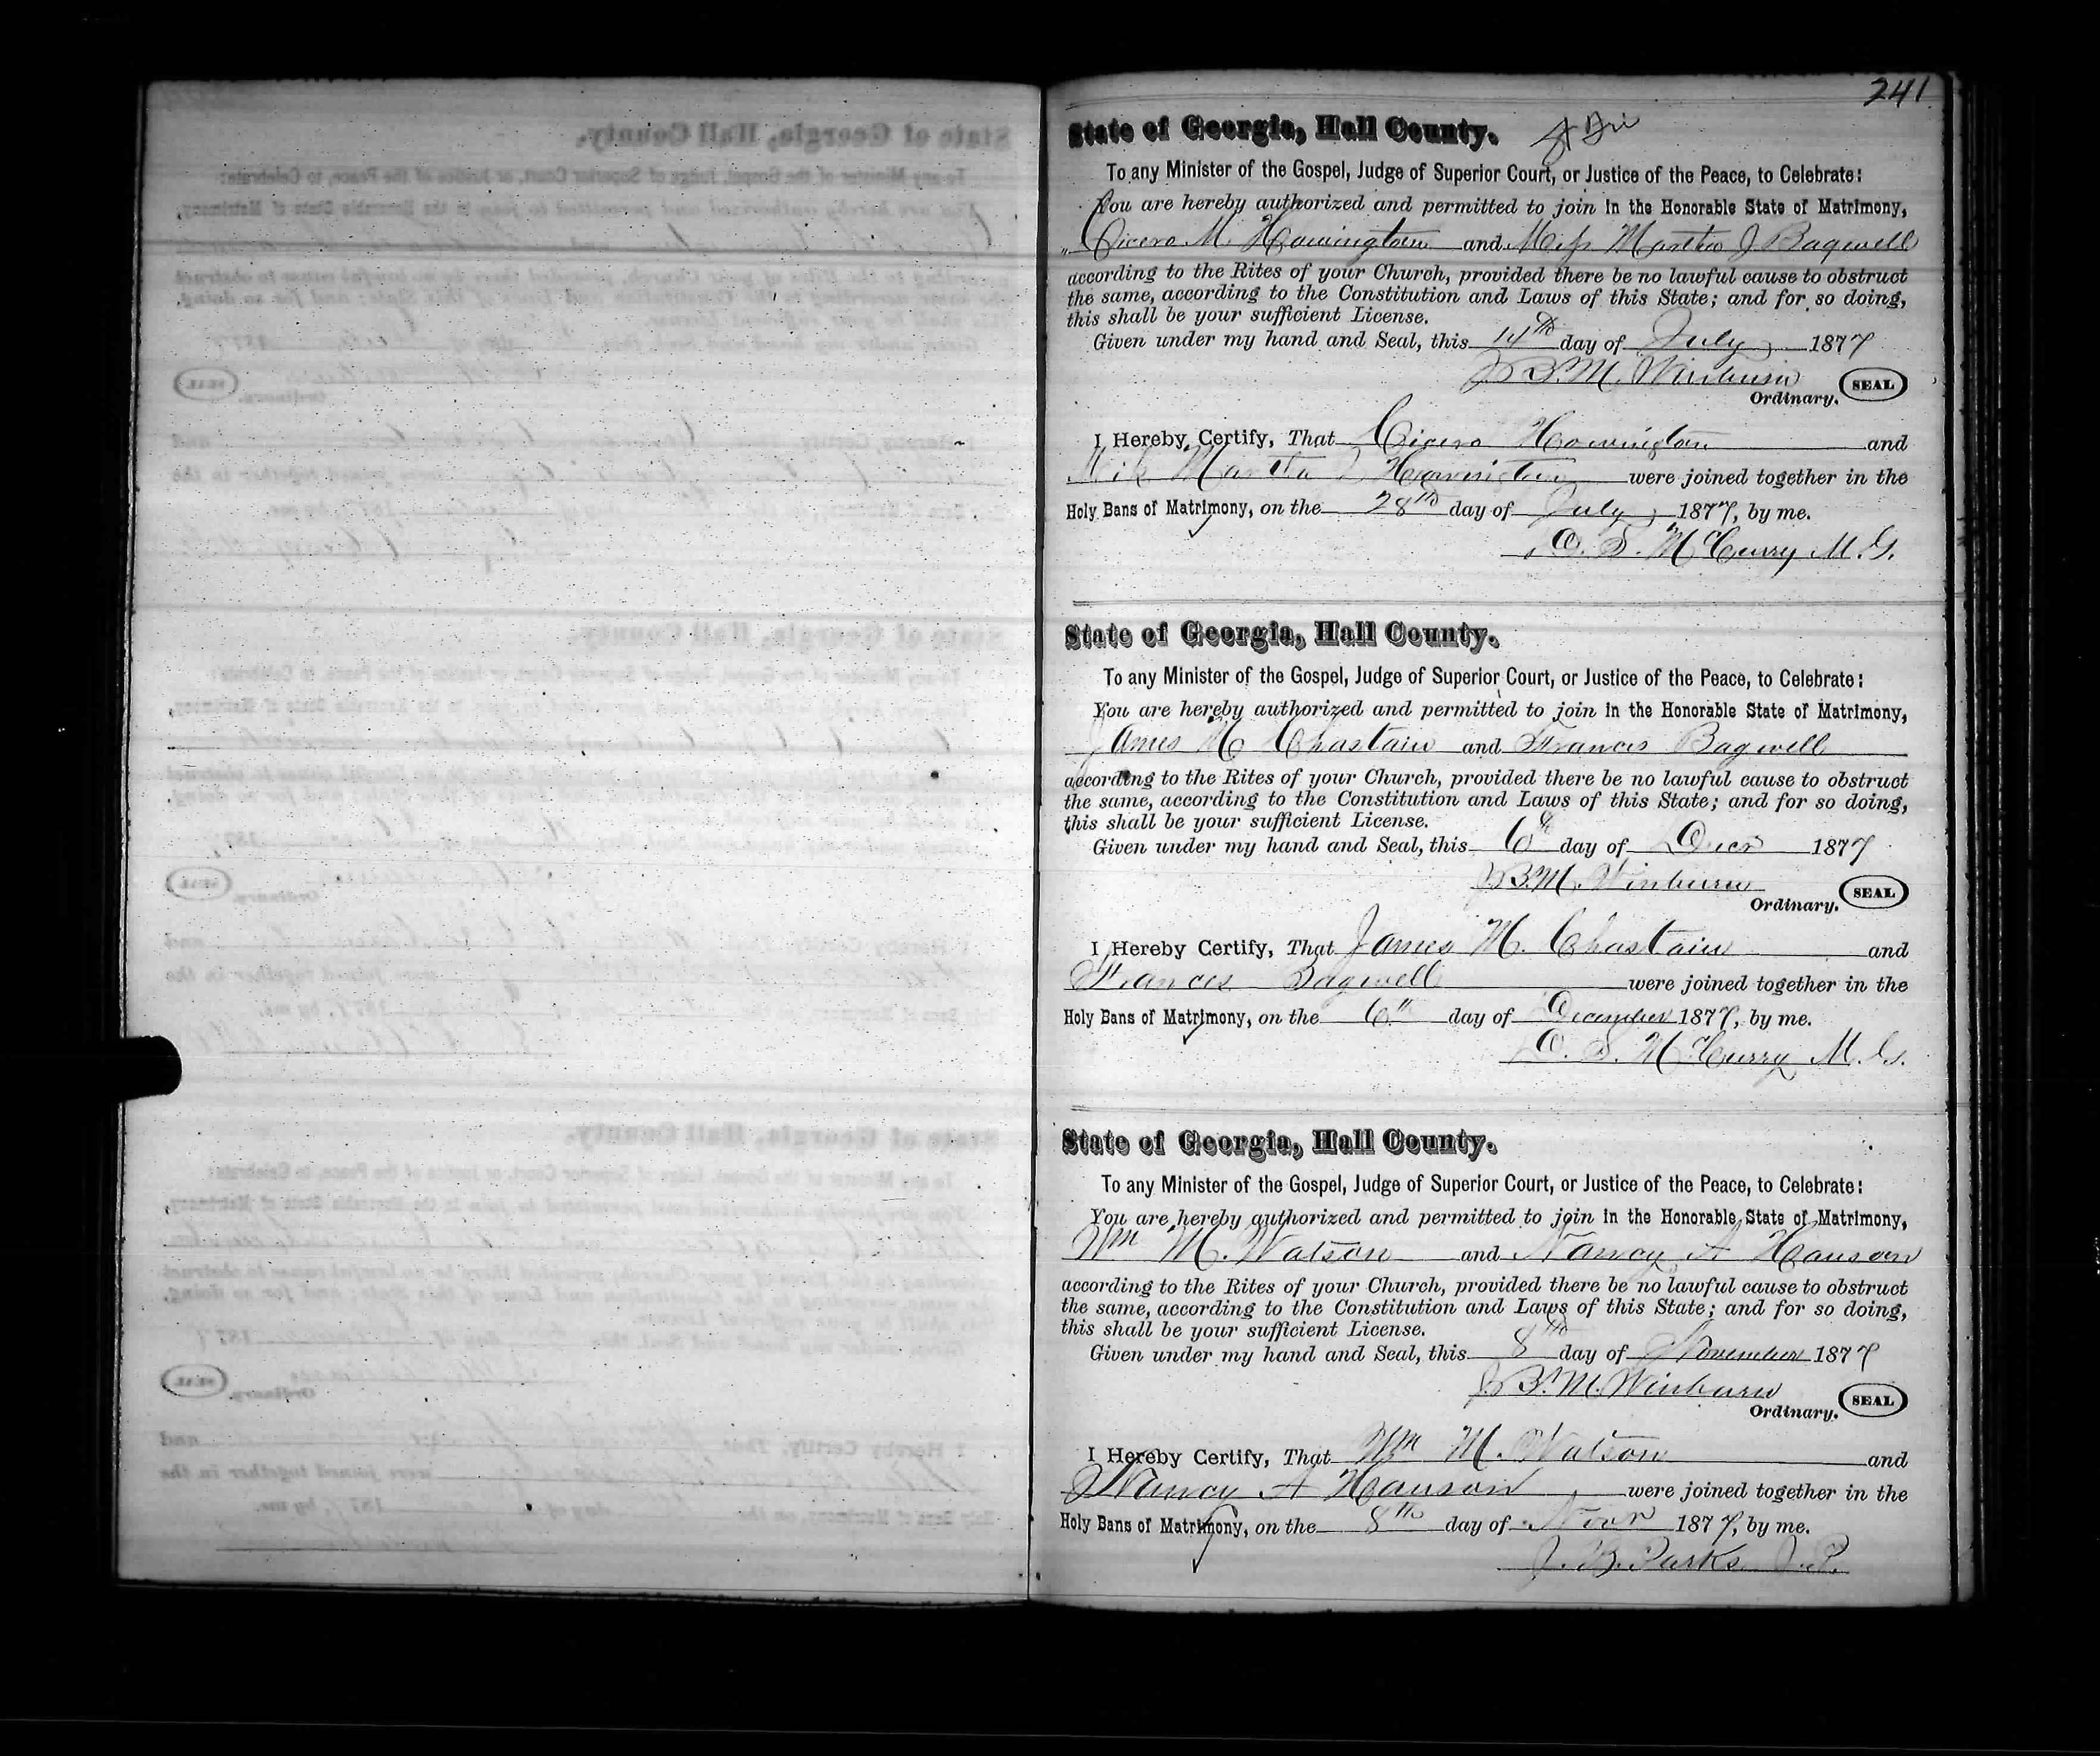 241
State of Georgia, Hall County.
To any Minister of the Gospel, Judge of Superior Court, or Justice of the Peace, to Celebrate:
You are hereby authorized and permitted to join in the Honorable State of Matrimony,
Cicero M. Howington and Miss Martha J Bagwell
according to the Rites of your Church, provided there be no lawful cause to obstruct
the same, according to the Constitution and Laws of this State; and for so doing,
this shall be your sufficient License.
Given under my hand and Seal, this 14th day of July 1877
J. B. M. Winburn SEAL
Ordinary.
I Hereby Certify, That Cicero Howington and
Martha J Howington were joined together in the
Holy Bans of Matrimony, on the 28th day of July 1877, by me.
D. S. McCurry M.G.
State of Georgia, Hall County.
To any Minister of the Gospel, Judge of Superior Court, or Justice of the Peace, to Celebrate:
You are hereby authorized and permitted to join in the Honorable State of Matrimony,
James M Chastain and Francis Bagwell
according to the Rites of your Church, provided there be no lawful cause to obstruct
the same, according to the Constitution and Laws of this State; and for so doing,
this shall be your sufficient License.
Given under my hand and Seal, this 6th day of Decr 1877
J. B. M. Winburn SEAL
Ordinary.
I Hereby Certify, That James M. Chastain and
Francis Bagwell were joined together in the
Holy Bans of Matrimony, on the 6th day of December 1877, by me.
D. S. McCurry M.G.
State of Georgia, Hall County.
To any Minister of the Gospel, Judge of Superior Court, or Justice of the Peace, to Celebrate:
You are hereby authorized and permitted to join in the Honorable State of Matrimony,
Wm M. Watson and Nancy A Hanson
according to the Rites of your Church, provided there be no lawful cause to obstruct
the same, according to the Constitution and Laws of this State; and for so doing,
this shall be your sufficient License.
Given under my hand and Seal, this 8th day of November 1877
J. B. M. Winburn SEAL
Ordinary.
I Hereby Certify, That Wm M. Watson and
Nancy A Hanson were joined together in the
Holy Bans of Matrimony, on the 8th day of Novr 1877, by me.
J. B. Parks J.P.